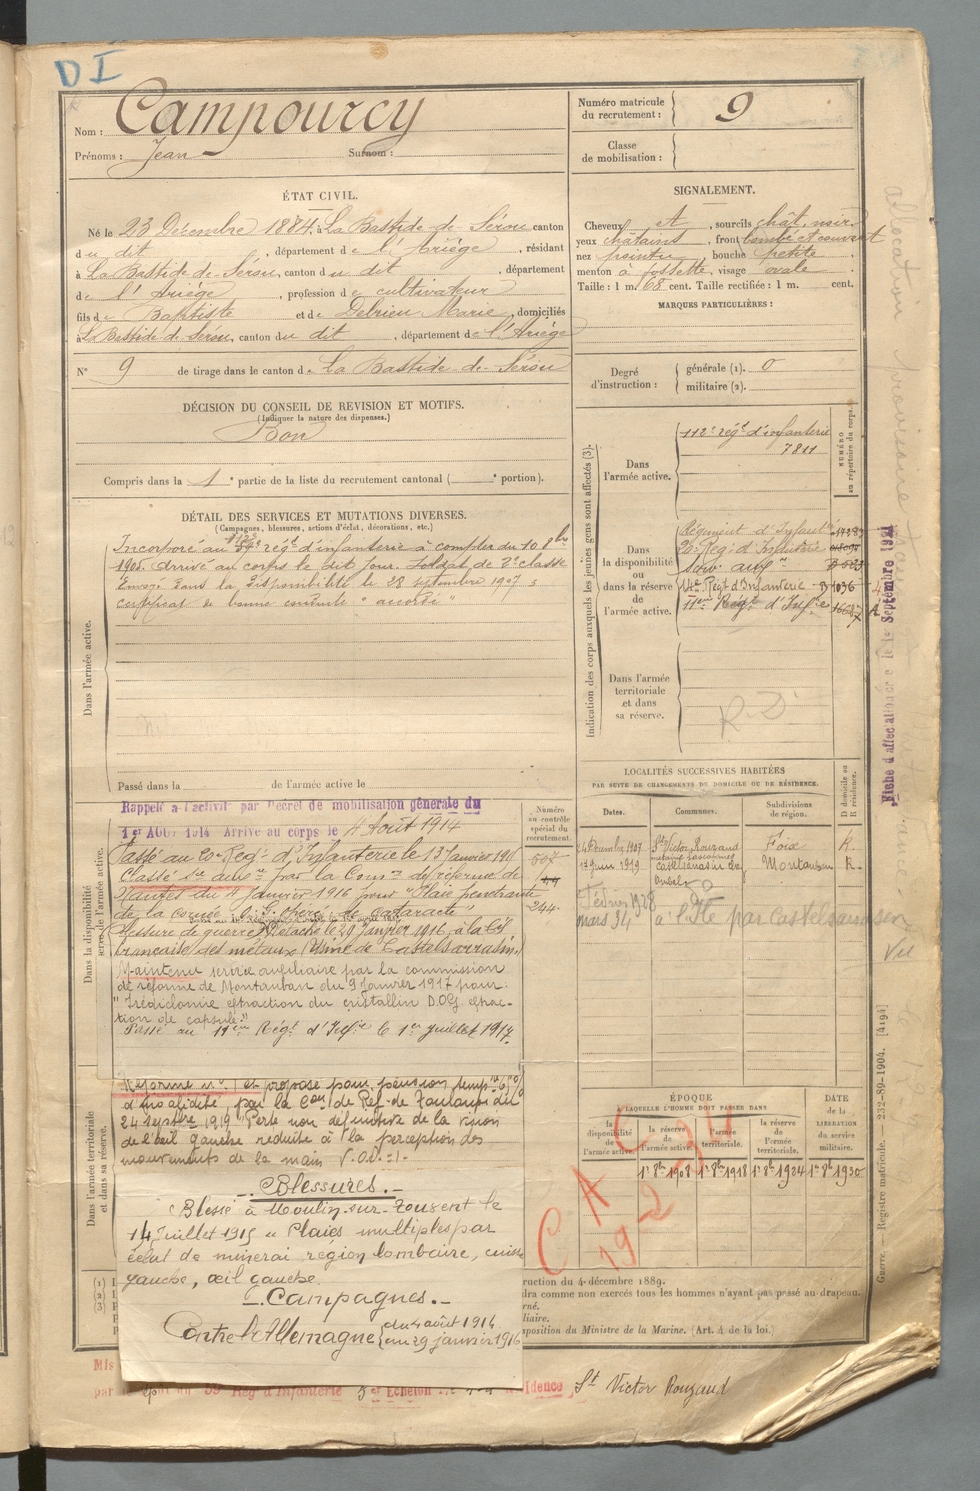 D I
Nom : Campourcy
Prénoms : Jean Surnom :
Numéro matricule
du recrutement : 9
Classe
de mobilisation :
ÉTAT CIVIL.
Né le 23 Décembre 1884, à La Bastide de Sérou canton
du dit, département de l'Ariège, résidant
à La Bastide de Sérou, canton du dit, département
de l'Ariège, profession de cultivateur
fils de Baptiste et de Debrieu Marie, domiciliés
à La Bastide de Sérou, canton du dit, département de l'Ariège
N° 9 de tirage dans le canton de La Bastide de Sérou
SIGNALEMENT.
Cheveux et, sourcils chât. noir
yeux châtains, front bombé et couvert
nez pointu, bouche petite,
menton à fossette, visage ovale
Taille : 1 m. 68 cent. Taille rectifiée : 1 m. cent.
MARQUES PARTICULIÈRES :
Degré
d'instruction :
générale (1). 0
militaire (2).
DÉCISION DU CONSEIL DE REVISION ET MOTIFS.
(Indiquer la nature des dispenses.)
Bon
Compris dans la 1e partie de la liste du recrutement cantonal ( e portion).
DÉTAIL DES SERVICES ET MUTATIONS DIVERSES.
(Campagnes, blessures, actions d'éclat, décorations, etc.)
Dans l'armée active.
Incorporé au régt d'infanterie à compter du 10 8bre
1905. Arrivé au corps le dit jour. Soldat de 2e classe
Envoyé dans la disponibilité le 28 septembre 1907
certificat de bonne conduite "accordé"
Passé dans la de l'armée active le
Indication des corps auxquels les jeunes gens sont affectés (3).
NUMÉRO
au répertoire du corps.
Dans
l'armée active.
112e régt d'infanterie
7811
Dans
la disponibilité
ou
dans la réserve
de
l'armée active.
Régiment d'Infanterie
20e Reg. d'Infanterie
Serv. auxre
14e Régt d'Infanterie 1036
11eme Régt d'Infie
Dans l'armée
territoriale
et dans
sa réserve.
R.D
Fiche d'affectation le 1er Septembre 1921
LOCALITÉS SUCCESSIVES HABITÉES
PAR SUITE DE CHANGEMENTS DE DOMICILE OU DE RÉSIDENCE.
Dates. Communes. Subdivisions
de région.
D domicile ou
R résidence.
Décembre 1907 St Victor Rouzaud Foix R.
17 Juin 1919 Castelsarrasin Montauban R.
Février 1928
mars 34 à l'Ile par Castelsarrasin
Vu
Dans la disponibilité
Numéro
au contrôle
spécial du
recrutement.
244
Rappelé à l'activité par Décret de mobilisation générale du
1er AOUT 1914 Arrivé au corps le 4 Août 1914
Passé au 20e Régt d'Infanterie le 13 Janvier 191
Classé Sce auxre par la Comon de réforme de
Nantes du 4 Janvier 1916 pour "Plaie pénétrante
de la cornée cataracte"
Blessure de guerre. Détaché le 29 Janvier 1916 à la Cie
française des métaux (Usine de Castelsarrasin)
Maintenu service auxiliaire par la commission
de réforme de Montauban du 9 Janvier 1917 pour :
"Irédictomie extraction du cristallin D.O.G. extrac-
tion de capsule."
Passé au 11eme Régt d'Infie le 1er juillet 1917
Dans l'armée territoriale
et dans sa réserve.
Réformé n° 1 et proposé pour pension tempre
d'invalidité, par la Con de Réf. de Toulouse du
24 septbre 1919 "Perte non définitive de la vision
de l'œil gauche réduite à la perception des
mouvements de la main V.O.D. = 1.
Blessures.
Blessé à Moulin-sur-Touvent le
14 Juillet 1915 "Plaies multiples par
éclat de minerai région lombaire, cuisse
gauche, œil gauche.
Campagnes.
Contre l'Allemagne du 4 août 1914
au 29 janvier 1916
ÉPOQUE
À LAQUELLE L'HOMME DOIT PASSER DANS
la
disponibilité
de
l'armée active.
la réserve
de
l'armée active.
l'armée
territoriale.
la réserve
de
l'armée
territoriale.
DATE
de la
LIBÉRATION
du service
militaire.
1er 8bre 1908 1er 8bre 1918 1er 8bre 1924 1er 8bre 1930
C A
19 2
(1)
(2)
(3)
ruction du 4 décembre 1889.
dra comme non exercés tous les hommes n'ayant pas passé au drapeau.
rné.
liaire.
sposition du Ministre de la Marine. (Art. 4 de la loi.)
Guerre. — Registre matricule. — 232-89-1904. [4194]
Mis
par le dépôt du 59e Rég d'Infanterie 3er Echelon résidence St Victor Rouzaud